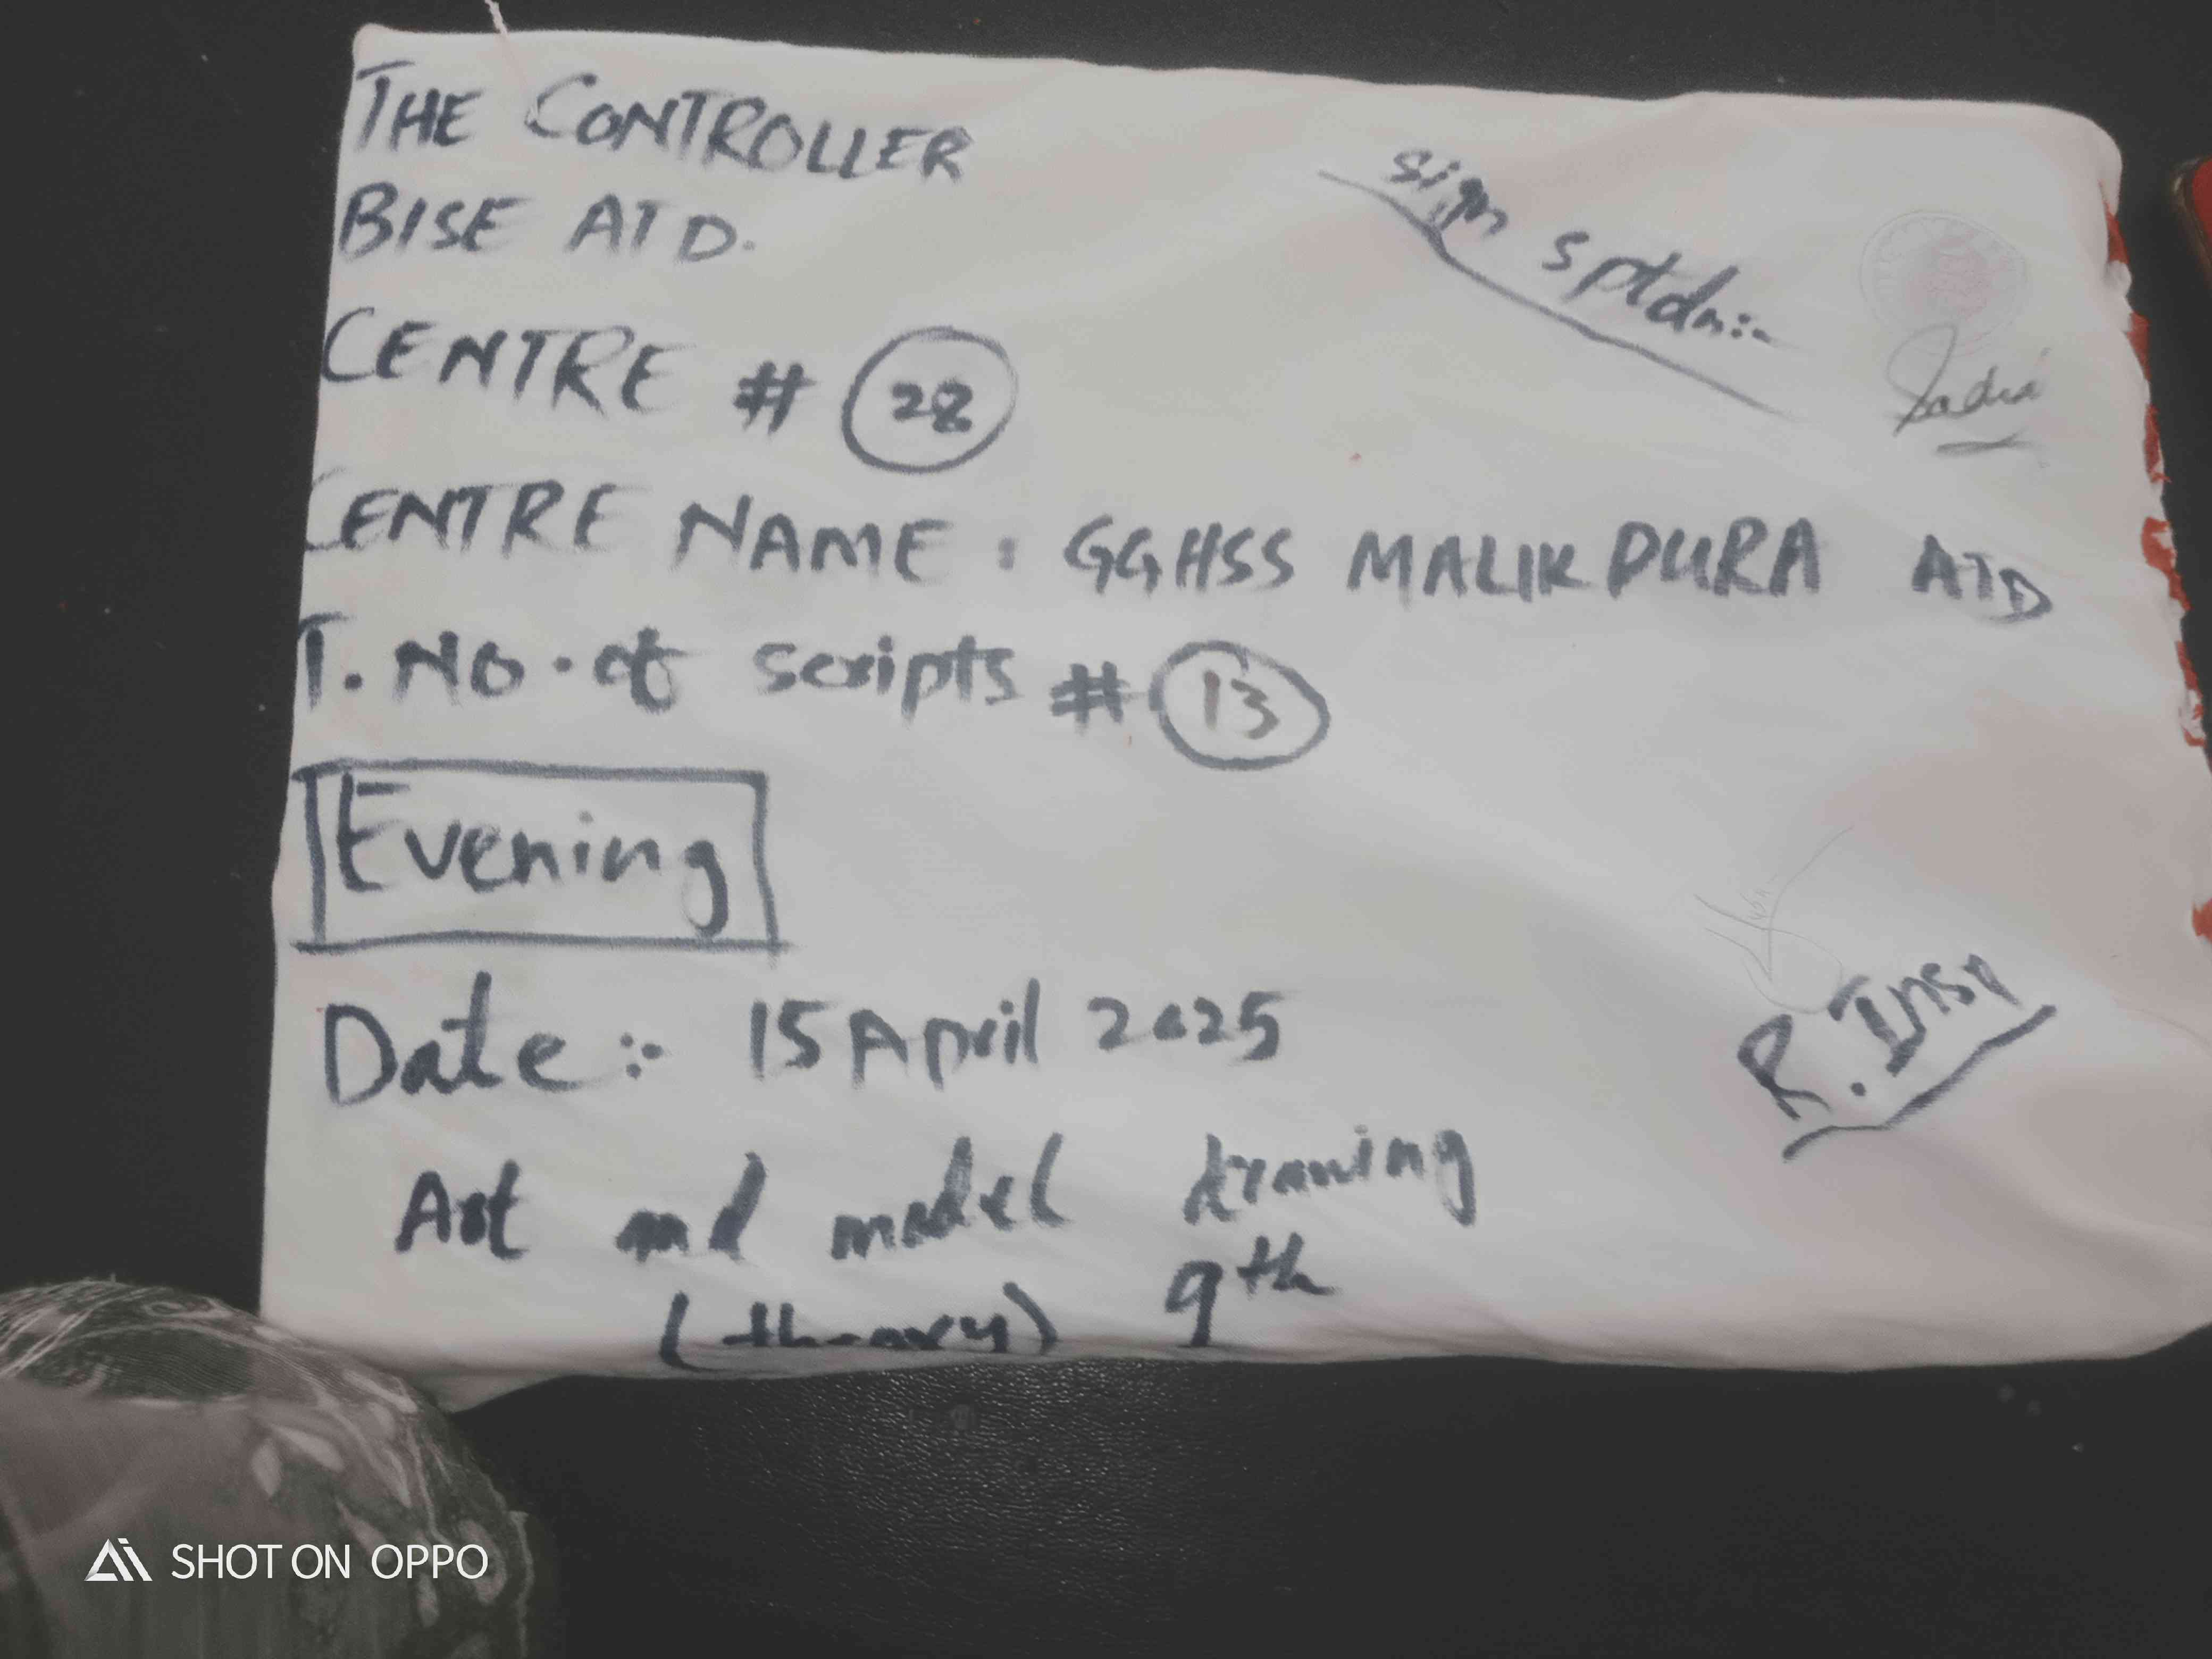 THE CONTROLLER
BISE ATD.
sign sptdn:-
Sadia
CENTRE # 28
CENTRE NAME : GGHSS MALIKPURA ATD
T. No. of scripts # 13
Evening
Date :- 15 April 2025
R. Insp
Art and model drawing
(theory) 9th
SHOT ON OPPO